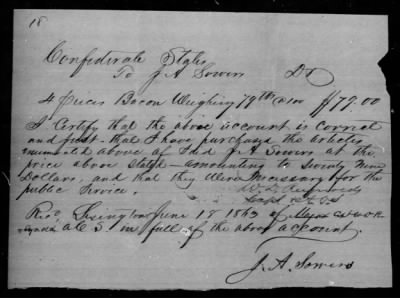 18
Confederate States
To J. A. Sowers Dr
4 Pieces Bacon Weighing 79 lbs @ 100 $79.00
I Certify that the above account is correct
and just - that I have purchased the articles
above of the J. A. Sowers at the
price above stated - amounting to Seventy Nine
Dollars, and that they were necessary for the
public Service.
Capt
Recd, June 18 1863 of
at C S in full of the above account.
J. A. Sowers